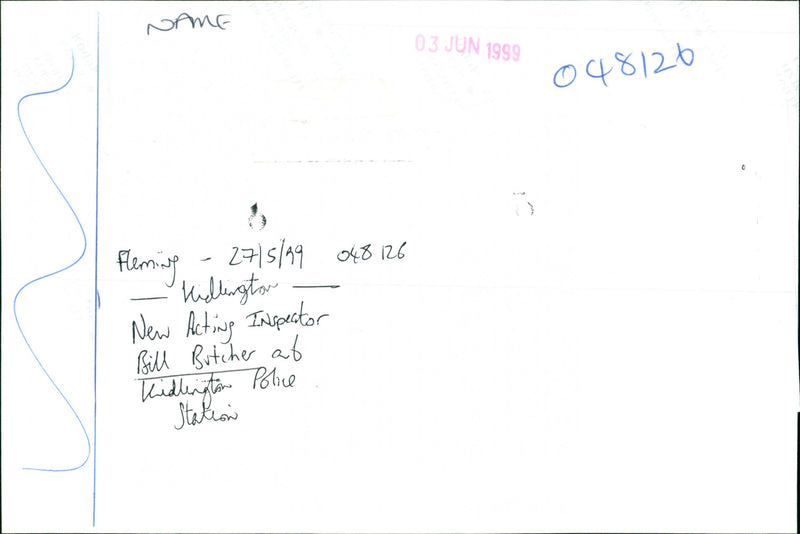 NAME
03 JUN 1999
048126
Fleming - 27/5/99 048126
— Kidlington —
New Acting Inspector
Bill Butcher at
Kidlington Police
Station